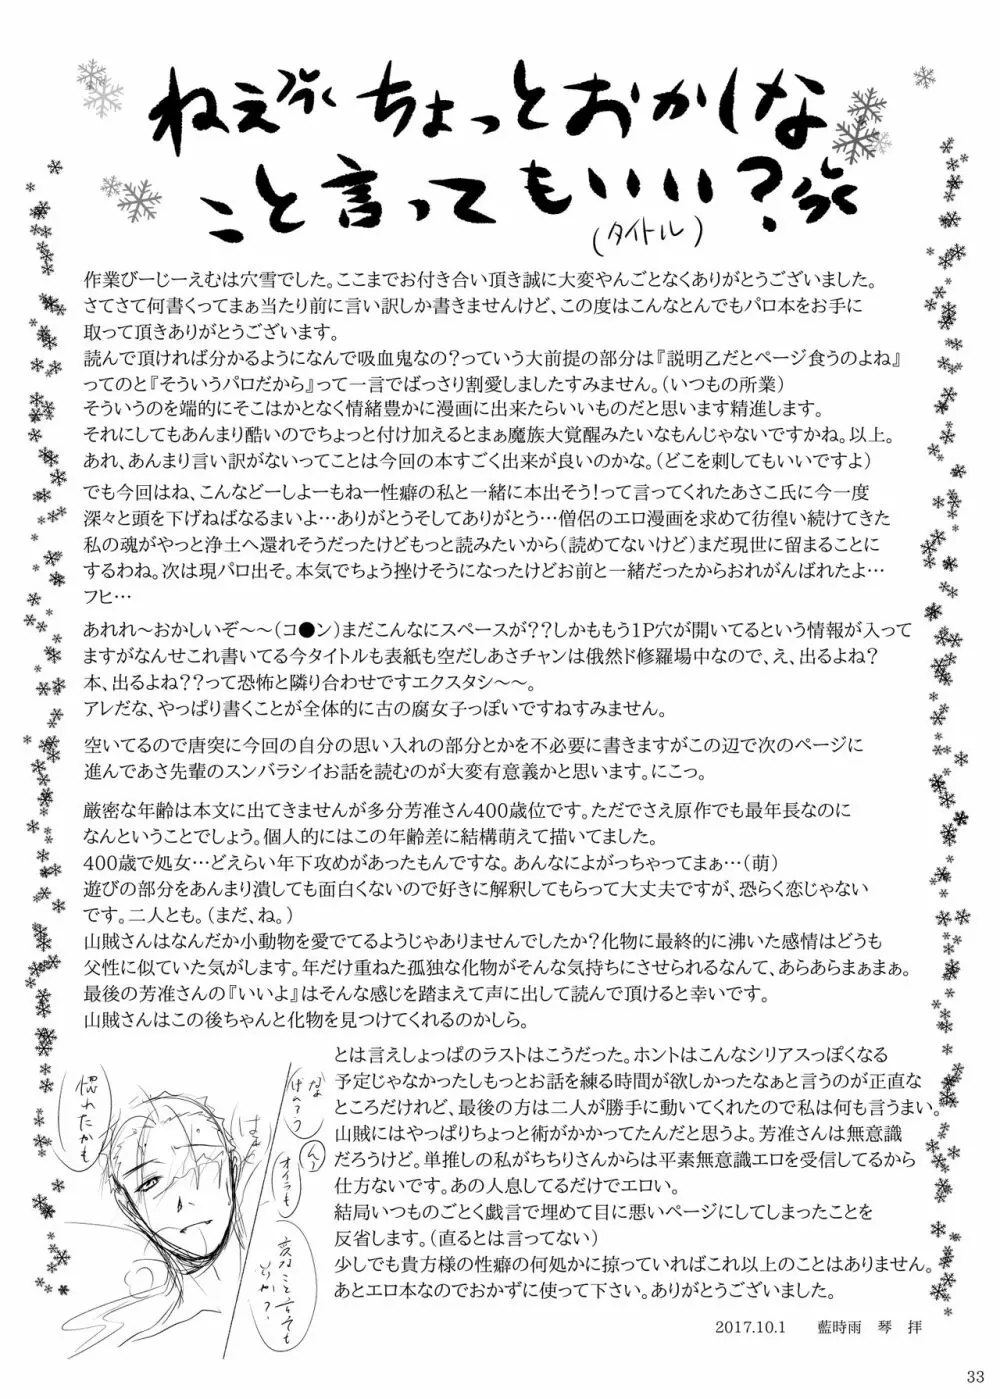 ねえ ちょっとおかしな
こと言ってもいい?
(タイトル)
作業びーじーえむは穴雪でした。ここまでお付き合い頂き誠に大変やんごとなくありがとうございました。
さてさて何書くってまぁ当たり前に言い訳しか書きませんけど、この度はこんなとんでもパロ本をお手に
取って頂きありがとうございます。
読んで頂ければ分かるようになんで吸血鬼なの?っていう大前提の部分は『説明乙だとページ食うのよね』
ってのと『そういうパロだから』って一言でばっさり割愛しましたすみません。(いつもの所業)
そういうのを端的にそこはかとなく情緒豊かに漫画に出来たらいいものだと思います精進します。
それにしてもあんまり酷いのでちょっと付け加えるとまぁ魔族大覚醒みたいなもんじゃないですかね。以上。
あれ、あんまり言い訳がないってことは今回の本すごく出来が良いのかな。(どこを刺してもいいですよ)
でも今回はね、こんなどーしよーもねー性癖の私と一緒に本出そう!って言ってくれたあさこ氏に今一度
深々と頭を下げねばなるまいよ…ありがとうそしてありがとう…僧侶のエロ漫画を求めて彷徨い続けてきた
私の魂がやっと浄土へ還れそうだったけどもっと読みたいから(読めてないけど)まだ現世に留まることに
するわね。次は現パロ出そ。本気でちょう挫けそうになったけどお前と一緒だったからおれがんばれたよ…
フヒ…
あれれ～おかしいぞ～～(コ●ン)まだこんなにスペースが??しかももう1P穴が開いてるという情報が入って
ますがなんせこれ書いてる今タイトルも表紙も空だしあさチャンは俄然ド修羅場中なので、え、出るよね?
本、出るよね??って恐怖と隣り合わせですエクスタシ～～。
アレだな、やっぱり書くことが全体的に古の腐女子っぽいですねすみません。
空いてるので唐突に今回の自分の思い入れの部分とかを不必要に書きますがこの辺で次のページに
進んであさ先輩のスンバラシイお話を読むのが大変有意義かと思います。にこっ。
厳密な年齢は本文に出てきませんが多分芳准さん400歳位です。ただでさえ原作でも最年長なのに
なんということでしょう。個人的にはこの年齢差に結構萌えて描いてました。
400歳で処女…どえらい年下攻めがあったもんですな。あんなによがっちゃってまぁ…(萌)
遊びの部分をあんまり潰しても面白くないので好きに解釈してもらって大丈夫ですが、恐らく恋じゃない
です。二人とも。(まだ、ね。)
山賊さんはなんだか小動物を愛でてるようじゃありませんでしたか?化物に最終的に沸いた感情はどうも
父性に似ていた気がします。年だけ重ねた孤独な化物がそんな気持ちにさせられるなんて、あらあらまぁまぁ。
最後の芳准さんの『いいよ』はそんな感じを踏まえて声に出して読んで頂けると幸いです。
山賊さんはこの後ちゃんと化物を見つけてくれるのかしら。
とは言えしょっぱのラストはこうだった。ホントはこんなシリアスっぽくなる
予定じゃなかったしもっとお話を練る時間が欲しかったなぁと言うのが正直な
ところだけれど、最後の方は二人が勝手に動いてくれたので私は何も言うまい。
山賊にはやっぱりちょっと術がかかってたんだと思うよ。芳准さんは無意識
だろうけど。単推しの私がちちりさんからは平素無意識エロを受信してるから
仕方ないです。あの人息してるだけでエロい。
結局いつものごとく戯言で埋めて目に悪いページにしてしまったことを
反省します。(直るとは言ってない)
少しでも貴方様の性癖の何処かに掠っていればこれ以上のことはありません。
あとエロ本なのでおかずに使って下さい。ありがとうございました。
2017.10.1 藍時雨 琴 拝
惚れたかも
オイラも
変なこと言っても
33